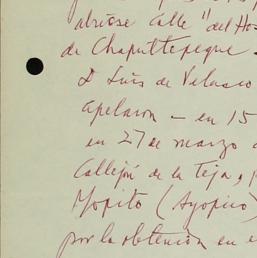 abrióse calle "del Hos
de Chapultepeque -
D Luis de Velasco
apelaron - en 15
en 27 de marzo
Callejón de la Teja,
Mopito (Ayopico)
por la obtención en e